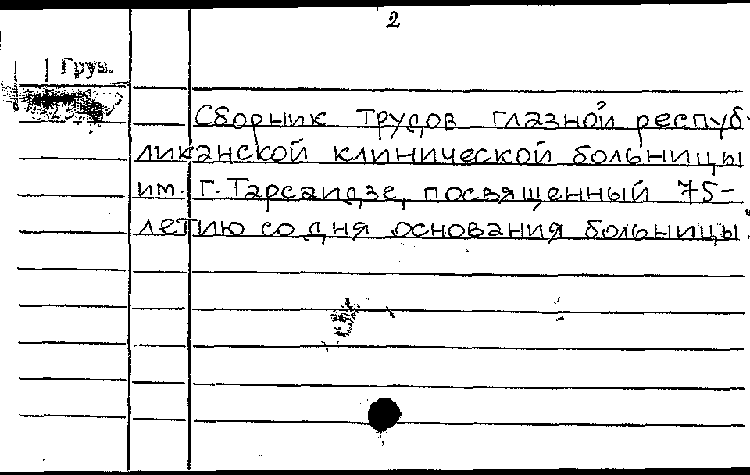 2
Груз.
Сборник трудов глазной респуб-
ликанской клинической больницы
им. Г. Тарсаидзе, посвященный 75-
летию со дня основания больницы.